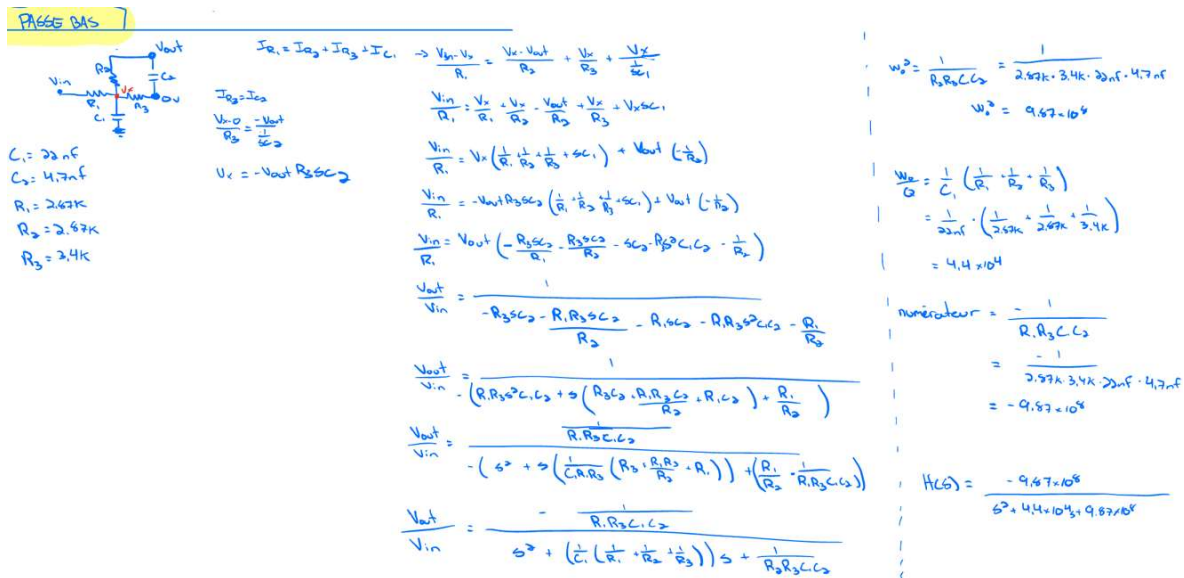 PASSE BAS
Vout
R2
C2
Vin
Vx
R1
R3
0V
C1
C1 = 22nf
C2 = 4,7nf
R1 = 2,87K
R2 = 2.87K
R3 = 3,4K
IR1 = IR2 + IR3 + IC1 → (Vin-Vx)/R1 = (Vx-Vout)/R2 + Vx/R3 + Vx/(1/sC1)
IR3 = IC2
(Vx-0)/R3 = -Vout/(1/sC2)
Vx = -Vout R3sC2
Vin/R1 = Vx/R1 + Vx/R2 - Vout/R2 + Vx/R3 + VxsC1
Vin/R1 = Vx(1/R1 + 1/R2 + 1/R3 + sC1) + Vout(-1/R2)
Vin/R1 = -VoutR3sC2(1/R1 + 1/R2 + 1/R3 + sC1) + Vout(-1/R2)
Vin/R1 = Vout(-R3sC2/R1 - R3sC2/R2 - sC2 - R3s²C1C2 - 1/R2)
Vout/Vin = 1/(-R3sC2 - R1R3sC2/R2 - R1sC2 - R1R3s²C1C2 - R1/R2)
Vout/Vin = 1/-(R1R3s²C1C2 + s(R3C2 + R1R3C2/R2 + R1C2) + R1/R2)
Vout/Vin = (1/R1R3C1C2)/-(s² + s(1/C1R1R3(R3 + R1R3/R2 + R1)) + (R1/R2 · 1/R1R3C1C2))
Vout/Vin = -(1/R1R3C1C2)/(s² + (1/C1(1/R1 + 1/R2 + 1/R3))s + 1/R2R3C1C2)
w0² = 1/R2R3C1C2 = 1/(2.87K · 3.4K · 22nf · 4.7nf)
w0² = 9.87×10⁸
w0/Q = 1/C1(1/R1 + 1/R2 + 1/R3)
= 1/22nf · (1/2.87K + 1/2.87K + 1/3.4K)
= 4,4×10⁴
numérateur = -1/R1R3C1C2
= -1/(2.87K · 3.4K · 22nf · 4,7nf)
= -9.87×10⁸
H(s) = -9.87×10⁸/(s² + 4,4×10⁴s + 9.87×10⁸)